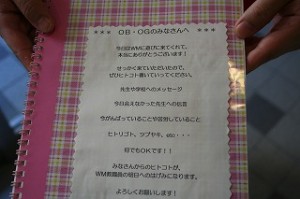 ＊＊＊ OB・OGのみなさんへ ＊＊＊
今日はWMに遊びに来てくれて、
本当にありがとうございます！
せっかく来ていただいたので、
ぜひヒトコト書いていってください。
先生や学校へのメッセージ
今日会えなかった先生への伝言
今がんばっていることや熱中していること
ヒトリゴト、ツブヤキ、etc・・・
何でもOKです！！
みなさんからのヒトコトが、
WM教職員の明日へのはげみになります。
よろしくお願いします！